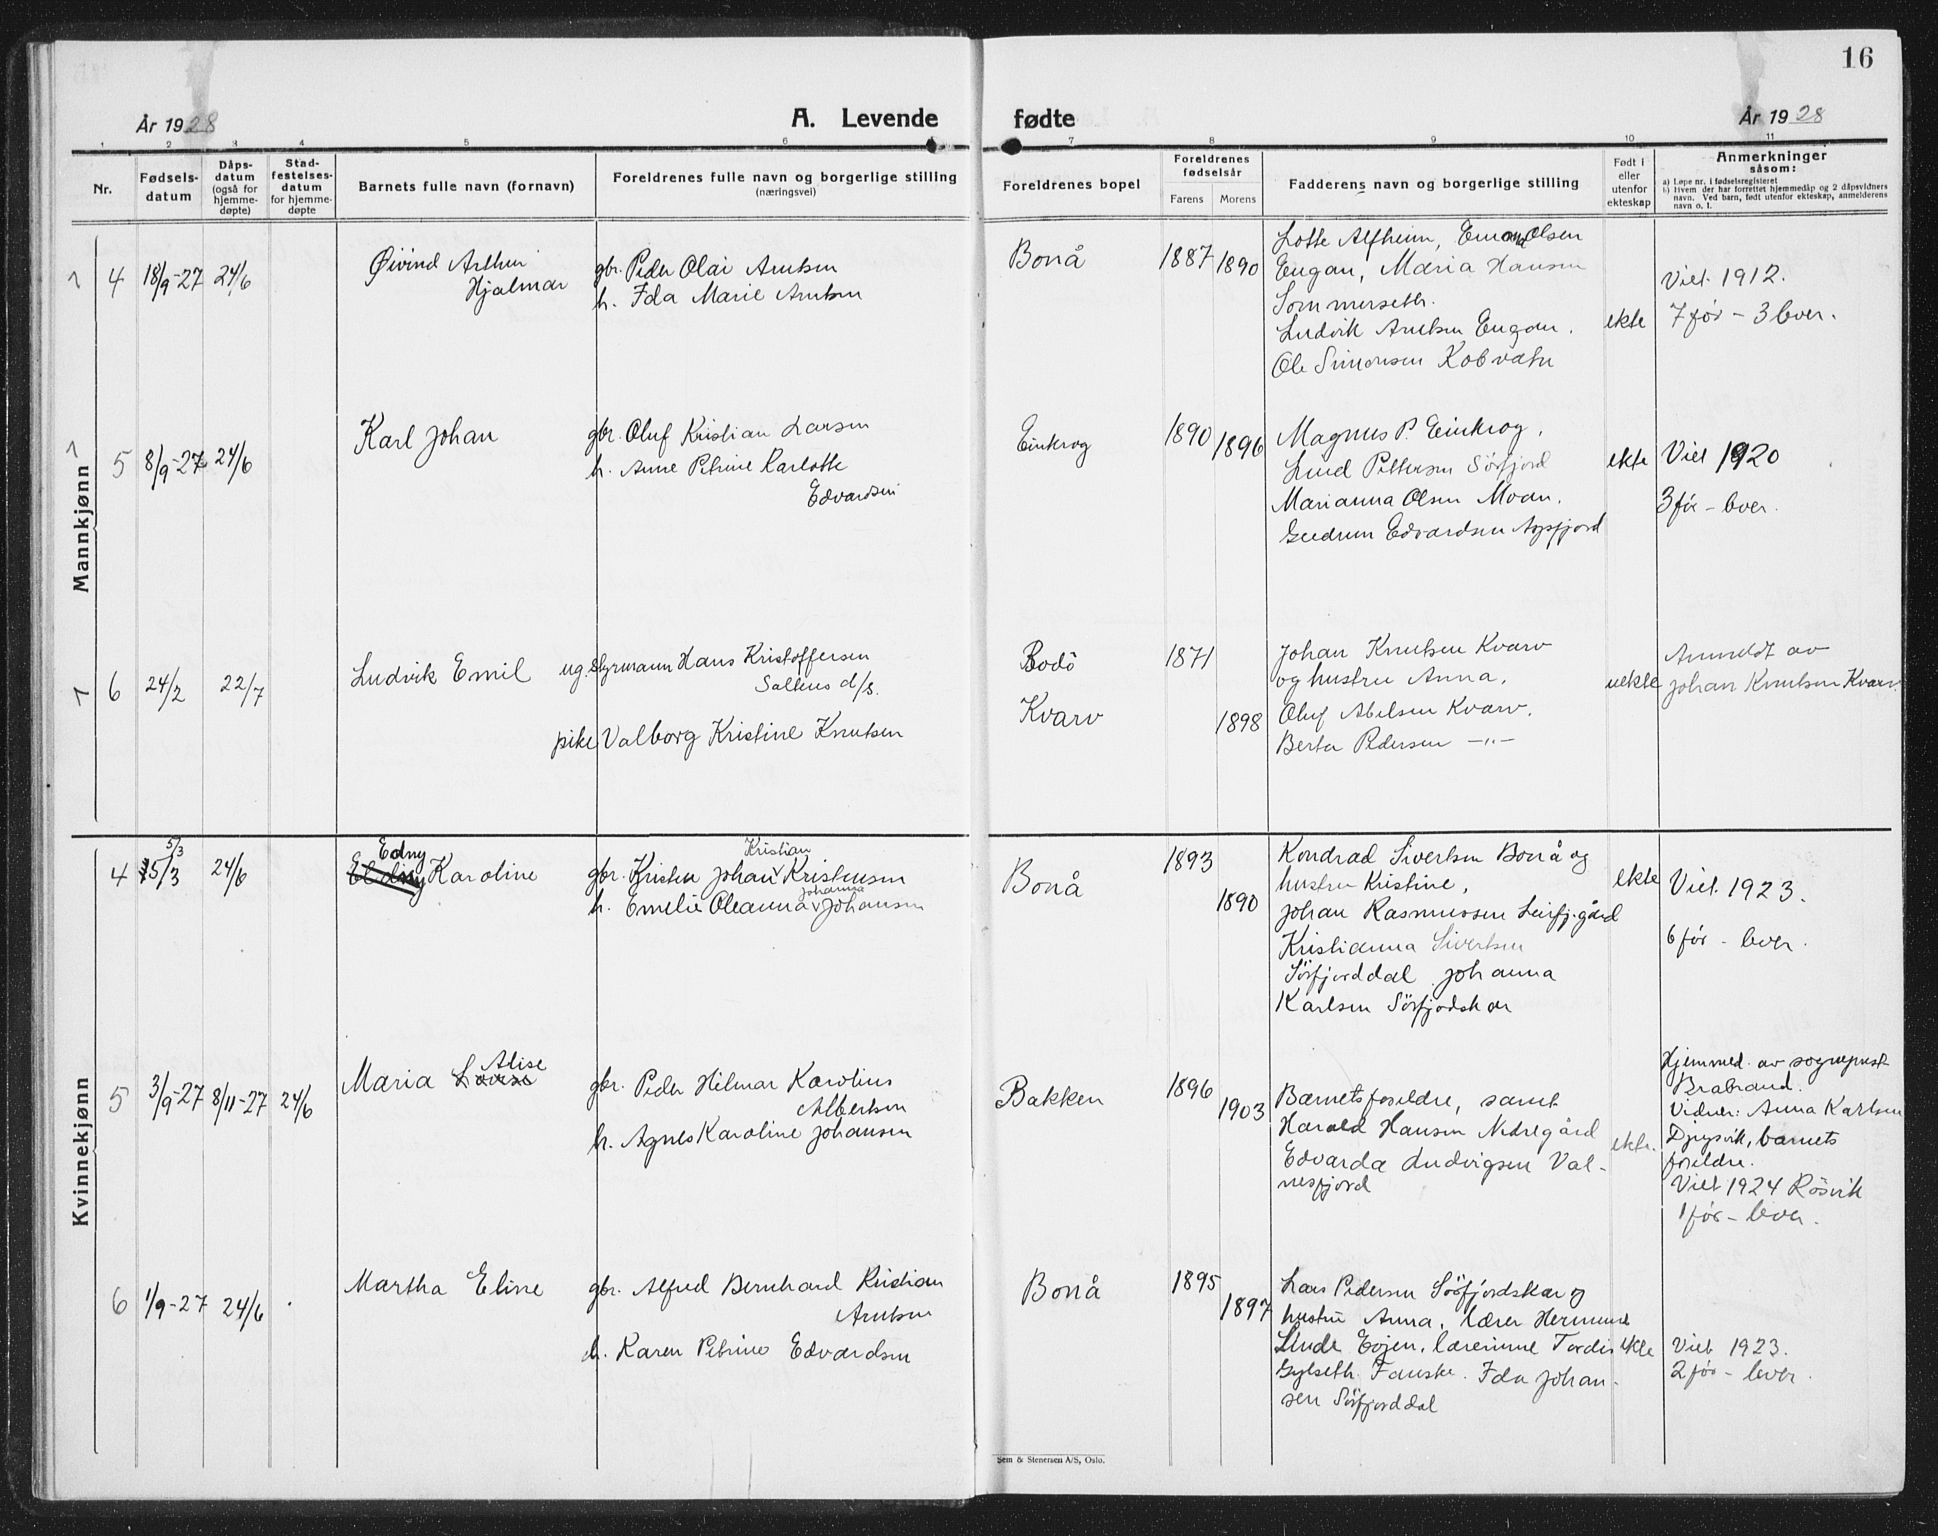 16
År 1928
A. Levende fødte
År 1928
1 2 3 4 5 6 7 8 9 10 11
Nr.
Fødsels-
datum
Dåps-
datum
(også for
hjemme-
døpte)
Stad-
festelses-
datum
for hjemme-
døpte
Barnets fulle navn (fornavn)
Foreldrenes fulle navn og borgerlige stilling
(næringsvei)
Foreldrenes bopel
Foreldrenes
fødselsår
Farens Morens
Fadderens navn og borgerlige stilling
Født i
eller
utenfor
ekteskap
Anmerkninger
såsom:
a) Løpe nr. i fødselsregisteret
b) Hvem der har forrettet hjemmedåp og 2 dåpsvidners
navn. Ved barn, født utenfor ekteskap, anmelderens
navn o. l.
Mannkjønn
4 18/9-27 24/6
Øivind Arthur
Hjalmar
gbr. Peder Olai Arntsen
h. Ida Marie Arntsen
Bonå
1887 1890
Lotte Alfheim, Olsen
Engan, Maria Hansen
Sommerseth.
Ludvik Arntsen Engan.
Ole Simonsen Kobvatn
ekte
Viet 1912.
7 før - 3 lever.
5 8/9-27 24/6
Karl Johan
gbr. Oluf Kristian Larsen
h. Anne Petrine Karlotte
Edvardsen
Einkrog
1890 1896
Magnus P. Einkrog.
Lind Pettersen Sörfjord
Marianna Olsen Moan.
Gudrun Edvardsen
ekte
Viet 1920
3 før - lever.
6 24/2 22/7
Ludvik Emil
ug. Styrmann Hans Kristoffersen
Saltens d/s.
pike Valborg Kristine Knutsen
Bodö
Kvarv
1871
1898
Johan Knutsen Kvarv
og hustru Anna.
Oluf Abelsen Kvarv.
Berta Pedersen -"-
uekte
Anmeldt av
Johan Knutsen Kvarv.
Kvinnekjønn
4 5/3 15/3 24/6
Edny
Eldny Karoline
Kristian
gbr. Kristen Johan Kristensen
Johanna
h. Emelie Oleanna Johansen
Bonå
1893
1890
Kondrad Sivertsen Bonå og
hustru Kristine.
Johan Rasmussen Leirfj.gård
Kristianna Sivertsen
Sörfjorddal Johanna
Karlsen Sörfjordskar
ekte
Viet 1923.
6 før - lever.
5 3/9-27 8/11-27 24/6
Alise
Maria Lovise
gbr. Peder Hilmar Karolius
Albertsen
h. Agnes Karoline Johansen
Bakken
1896
1903
Barnets foreldre, samt
Harald Hansen Nedregård
Edvarda Ludvigsen Val-
nesfjord
ekte.
Hjemmed. av sogneprest
Brabrand.
Vidner: Anna Karlsen
Djupvik, barnets
foreldre.
Viet 1924 Rösvik
1 før - lever.
6 1/9-27 24/6
Martha Eline
gbr. Alfred Bernhard Kristian
Arntsen
h. Karen Petrine Edvardsen
Bonå
1895
1897
Lars Pedersen Sörfjordskar og
hustru Anna, lærer Hermund
Linde Eojen, lærerinne Tordis
Gylseth Fauske. Ida Johan-
sen Sörfjorddal
ekte
Viet 1923.
2 før - lever.
Sem & Stenersen A/S, Oslo.